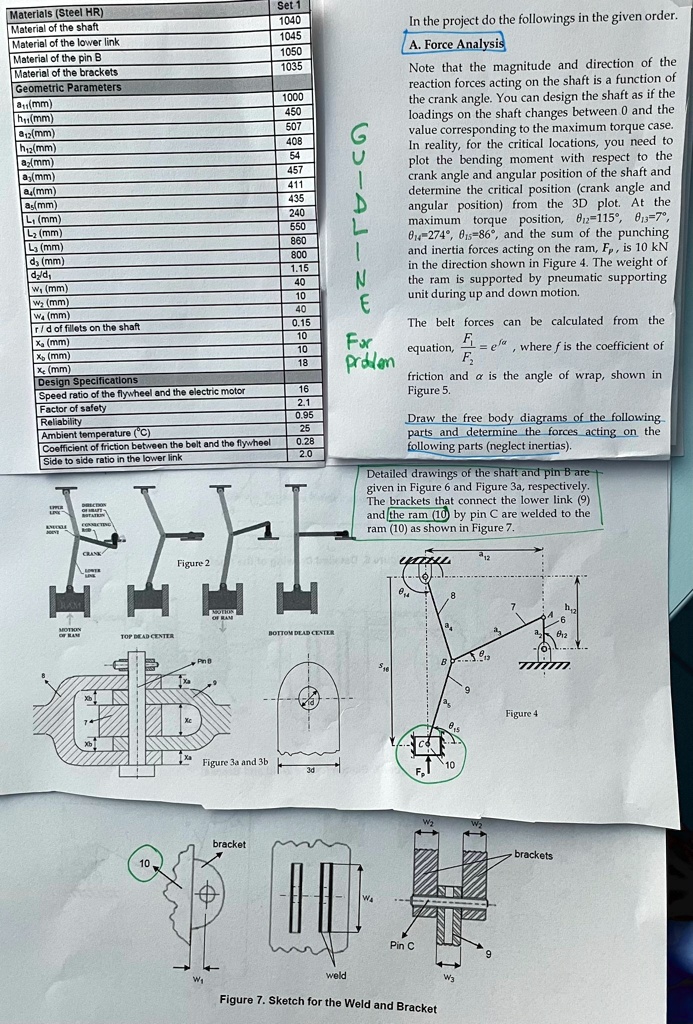 Materials (Steel HR) Set 1
Material of the shaft 1040
Material of the lower link 1045
Material of the pin B 1050
Material of the brackets 1035
Geometric Parameters
a₁₁(mm) 1000
h₁₁(mm) 450
a₁₂(mm) 507
h₁₂(mm) 408
a₂(mm) 54
a₃(mm) 457
a₄(mm) 411
a₅(mm) 435
L₁ (mm) 240
L₂ (mm) 550
L₃ (mm) 860
d₃ (mm) 800
d₂/d₁ 1.15
w₁ (mm) 40
w₂ (mm) 10
w₄ (mm) 40
r / d of fillets on the shaft 0.15
Xₐ (mm) 10
X_b (mm) 10
X_c (mm) 18
Design Specifications
Speed ratio of the flywheel and the electric motor 16
Factor of safety 2.1
Reliability 0.95
Ambient temperature (°C) 25
Coefficient of friction between the belt and the flywheel 0.28
Side to side ratio in the lower link 2.0
GUIDLINE
For
problem
In the project do the followings in the given order.
A. Force Analysis
Note that the magnitude and direction of the
reaction forces acting on the shaft is a function of
the crank angle. You can design the shaft as if the
loadings on the shaft changes between 0 and the
value corresponding to the maximum torque case.
In reality, for the critical locations, you need to
plot the bending moment with respect to the
crank angle and angular position of the shaft and
determine the critical position (crank angle and
angular position) from the 3D plot. At the
maximum torque position, θ₁₂=115°, θ₁₃=7°,
θ₁₄=274°, θ₁₅=86°, and the sum of the punching
and inertia forces acting on the ram, Fₚ, is 10 kN
in the direction shown in Figure 4. The weight of
the ram is supported by pneumatic supporting
unit during up and down motion.
The belt forces can be calculated from the
equation, F₁/F₂ = e^fα, where f is the coefficient of
friction and α is the angle of wrap, shown in
Figure 5.
Draw the free body diagrams of the following
parts and determine the forces acting on the
following parts (neglect inertias).
Detailed drawings of the shaft and pin B are
given in Figure 6 and Figure 3a, respectively.
The brackets that connect the lower link (9)
and the ram (10) by pin C are welded to the
ram (10) as shown in Figure 7.
UPPER
LINK
DIRECTION
OF SHAFT
ROTATION
KNUCKLE
JOINT
CONNECTING
ROD
CRANK
LOWER
LINK
RAM
MOTION
OF RAM
TOP DEAD CENTER
Figure 2
MOTION
OF RAM
BOTTOM DEAD CENTER
8
Pin B
Xa
9
Xb
7
Xc
Xb
Xa
Figure 3a and 3b
d
3d
a₁₂
θ₁₄
8
a₄
7
A
h₁₂
6
a₃
a₂
θ₁₂
S₁₆
B
θ₁₃
9
a₅
Figure 4
θ₁₅
C
10
Fₚ
10
bracket
W₁
W₄
weld
W₂
W₂
brackets
Pin C
9
W₃
Figure 7. Sketch for the Weld and Bracket